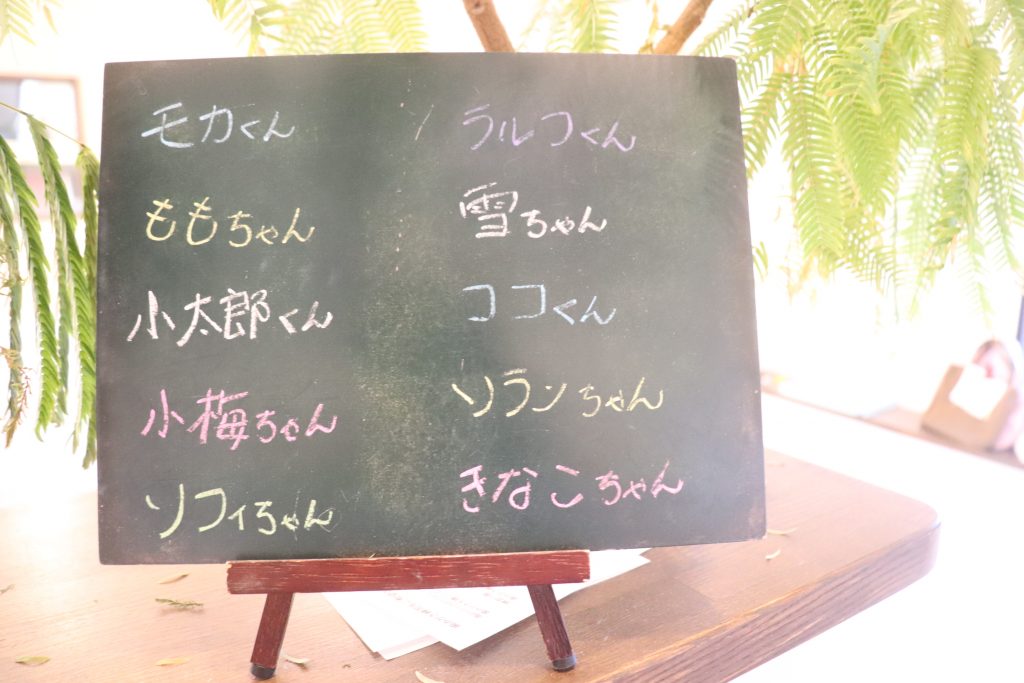 モカくん
ももちゃん
小太郎くん
小梅ちゃん
ソフィちゃん
ラルフくん
雪ちゃん
ココくん
ソランちゃん
きなこちゃん